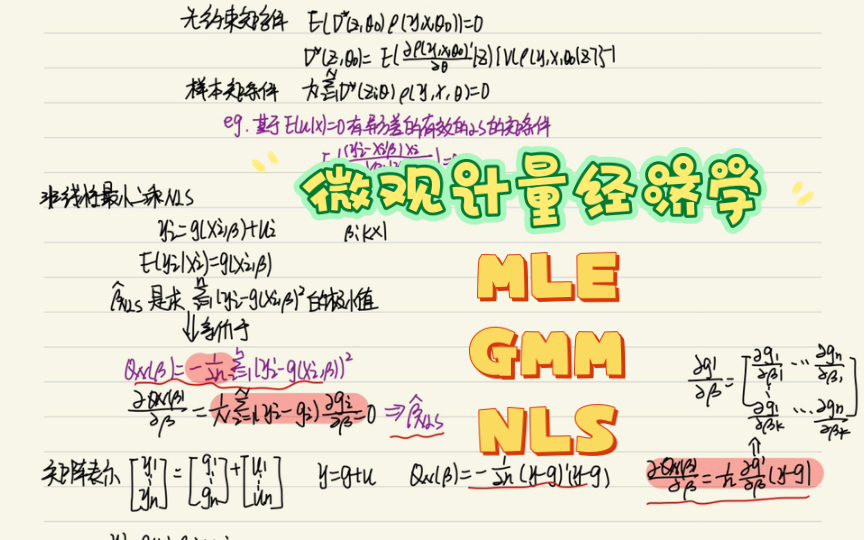 无约束矩条件 E(D*(z,θ₀)ρ(y,x,θ₀))=0
D*(z,θ₀)= E(∂ρ(y,x,θ₀)'/∂θ|z)[V(ρ(y,x,θ₀|z)]⁻¹
样本矩条件 1/N Σ D*(zᵢθ)ρ(y,x,θ)=0
eg.基于E(u|x)=0有异方差的有效的LS的矩条件
微观计量经济学
非线性最小二乘NLS
yᵢ=g(xᵢ,β)+uᵢ β:k×1
E(yᵢ|xᵢ)=g(xᵢ,β)
MLE
β̂NLS是求 Σ(yᵢ-g(xᵢ,β)² 的极小值
↓等价于
GMM
Q_N(β)=-1/2n Σ(yᵢ-g(xᵢ,β))²
∂Q_N(β)/∂β=1/N Σ(yᵢ-gᵢ)∂gᵢ/∂β=0 ⇒β̂NLS
∂g'/∂β=[∂g₁/∂β₁ ... ∂gn/∂β₁ ⋮ ∂g₁/∂βk ... ∂gn/∂βk]
NLS
矩阵表示 [y₁ ⋮ yn]=[g₁ ⋮ gn]+[u₁ ⋮ un] y=g+u Q_N(β)=-1/2n(y-g)'(y-g) ∂Q_N(β)/∂β=1/n ∂g'/∂β(y-g)